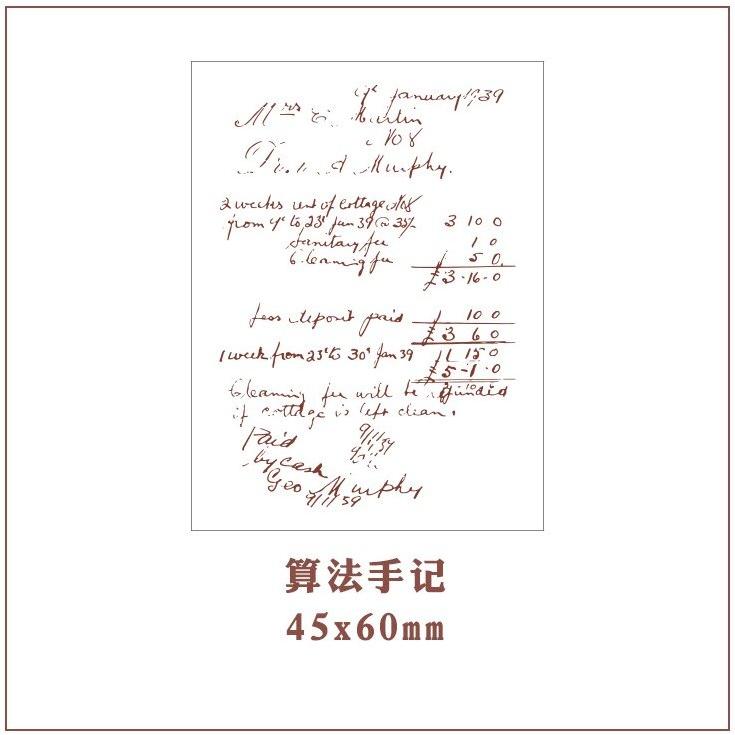 January 1939
Mrs Martin
No 8
Murphy.
2 weeks rent of Cottage No8
from 9t to 23d Jan 39 @ 35/- 3 10 0
Sanitary fee 1 0
Cleaning fee 5 0.
£3-16-0
less deposit paid 10 0
£3 6 0
1 week from 23d to 30t Jan 39 1 15 0
£5-1-0
Cleaning fee will be refunded
if cottage is left clean.
Paid 9/1/39
by cash
Geo Murphy
9/1/39
算法手记
45x60mm